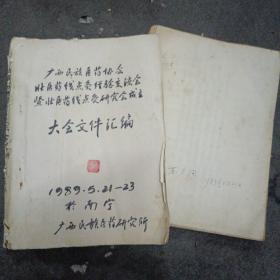 广西民族医药协会
壮医药线点灸经验交流会
暨壮医药线点灸研究会成立
大会文件汇编
1989.5.21-23
于南宁
广西民族医药研究所